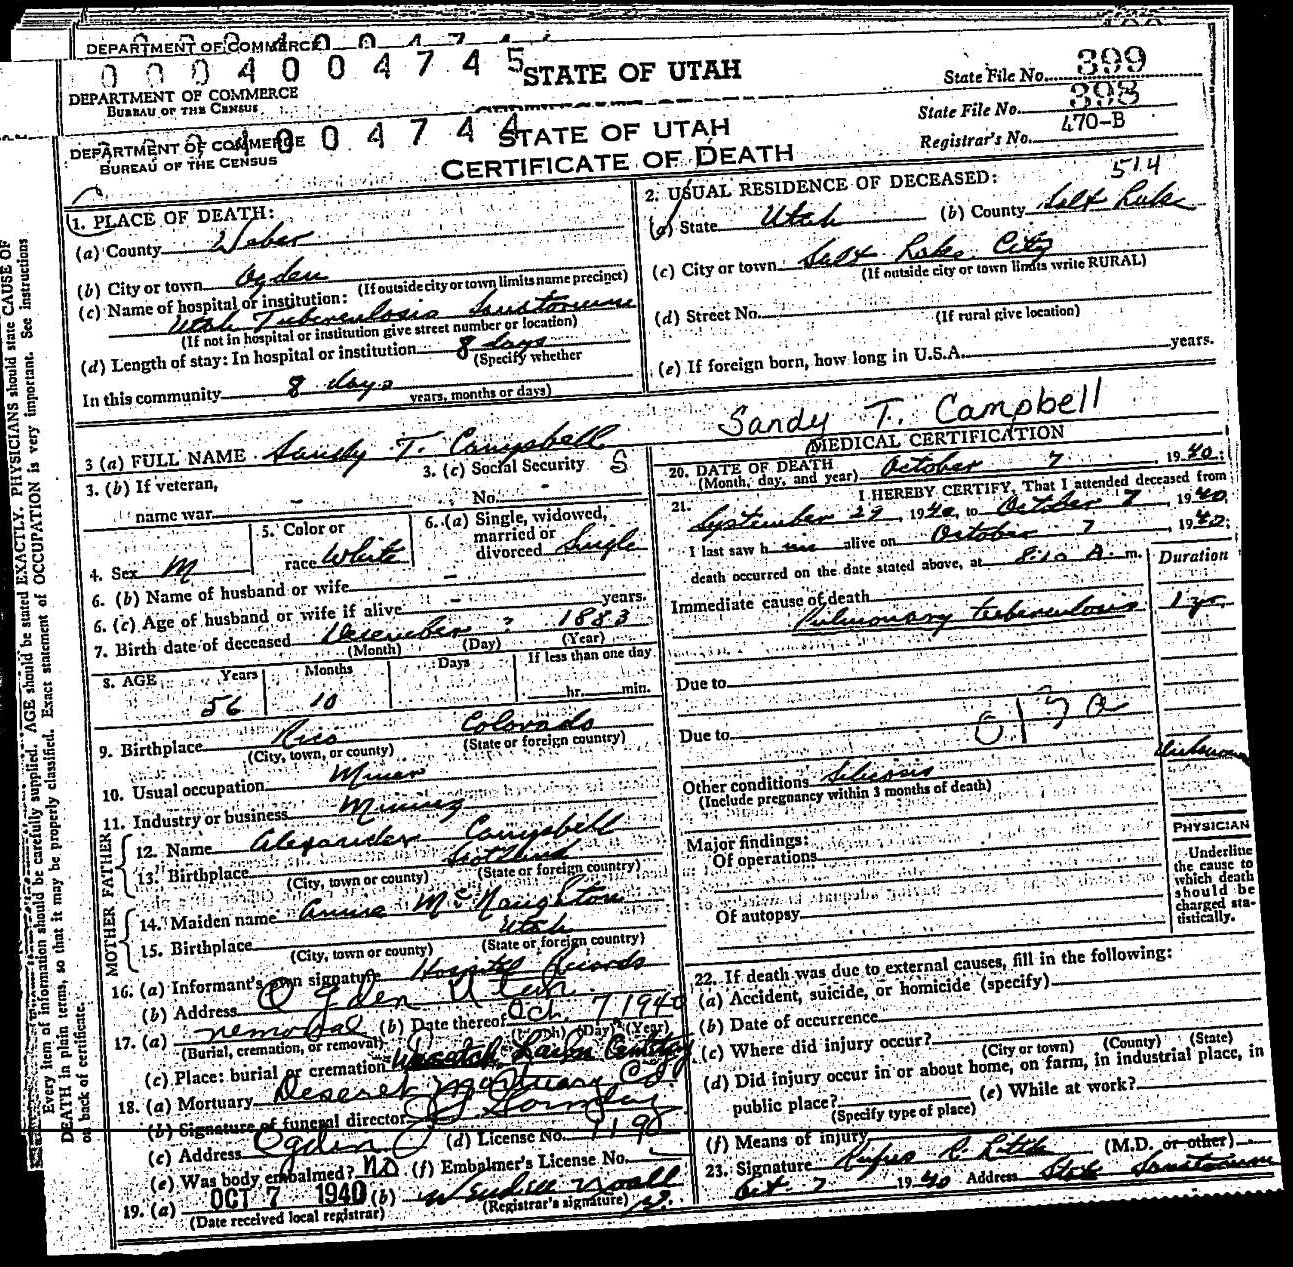 DEPARTMENT OF COMMERCE
0004004745
STATE OF UTAH
State File No. 399
DEPARTMENT OF COMMERCE
BUREAU OF THE CENSUS
State File No. 398
004744
DEPARTMENT OF COMMERCE
BUREAU OF THE CENSUS
STATE OF UTAH
CERTIFICATE OF DEATH
Registrar's No. 470-B
514
1. PLACE OF DEATH:
(a) County Weber
(b) City or town Ogden
(If outside city or town limits name precinct)
(c) Name of hospital or institution:
Utah Tuberculosis Sanatorium
(If not in hospital or institution give street number or location)
(d) Length of stay: In hospital or institution 8 days
(Specify whether
In this community 8 days
years, months or days)
2. USUAL RESIDENCE OF DECEASED:
(a) State Utah (b) County Salt Lake
(c) City or town Salt Lake City
(If outside city or town limits write RURAL)
(d) Street No.
(If rural give location)
(e) If foreign born, how long in U.S.A. years.
Sandy T. Campbell
3 (a) FULL NAME Sandy T. Campbell
3. (b) If veteran,
name war -
3. (c) Social Security S
No. -
4. Sex M
5. Color or
race White
6. (a) Single, widowed,
married or
divorced Single
6. (b) Name of husband or wife -
6. (c) Age of husband or wife if alive - years.
7. Birth date of deceased December ? 1883
(Month) (Day) (Year)
8. AGE Years Months Days If less than one day
56 10 hr. min.
9. Birthplace Rico Colorado
(City, town, or county) (State or foreign country)
10. Usual occupation Miner
11. Industry or business Mining
FATHER
12. Name Alexander Campbell
13. Birthplace Scotland
(City, town or county) (State or foreign country)
MOTHER
14. Maiden name Annie McNaughton
15. Birthplace Utah
(City, town or county) (State or foreign country)
16. (a) Informant's own signature Hospital Records
(b) Address Ogden Utah
17. (a) removal (b) Date thereof Oct. 7 1940
(Burial, cremation, or removal) (Month) (Day) (Year)
(c) Place: burial or cremation Wasatch Lawn Cemetery
18. (a) Mortuary Deseret Mortuary Co
(b) Signature of funeral director
(c) Address Ogden (d) License No. 1190
(e) Was body embalmed? No (f) Embalmer's License No.
19. (a) OCT 7 1940 (b) Wendell Noall
(Date received local registrar) (Registrar's signature)
MEDICAL CERTIFICATION
20. DATE OF DEATH
(Month, day, and year) October 7, 1940;
21. I HEREBY CERTIFY, That I attended deceased from
September 29, 1940, to October 7, 1940
I last saw him alive on October 7, 1940;
death occurred on the date stated above, at 8:10 A. m.
Duration
Immediate cause of death
Pulmonary tuberculosis 1 yr.
Due to
Due to
013a
Other conditions Silicosis unknown
(Include pregnancy within 3 months of death)
Major findings:
Of operations
Of autopsy
PHYSICIAN
Underline
the cause to
which death
should be
charged sta-
tistically.
22. If death was due to external causes, fill in the following:
(a) Accident, suicide, or homicide (specify)
(b) Date of occurrence
(c) Where did injury occur?
(City or town) (County) (State)
(d) Did injury occur in or about home, on farm, in industrial place, in
public place? (e) While at work?
(Specify type of place)
(f) Means of injury
23. Signature Rufus C. Little (M.D. or other)
Oct 7 1940 Address State Sanatorium
Every item of information should be carefully supplied. AGE should be stated EXACTLY. PHYSICIANS should state CAUSE OF
DEATH in plain terms, so that it may be properly classified. Exact statement of OCCUPATION is very important. See instructions
on back of certificate.